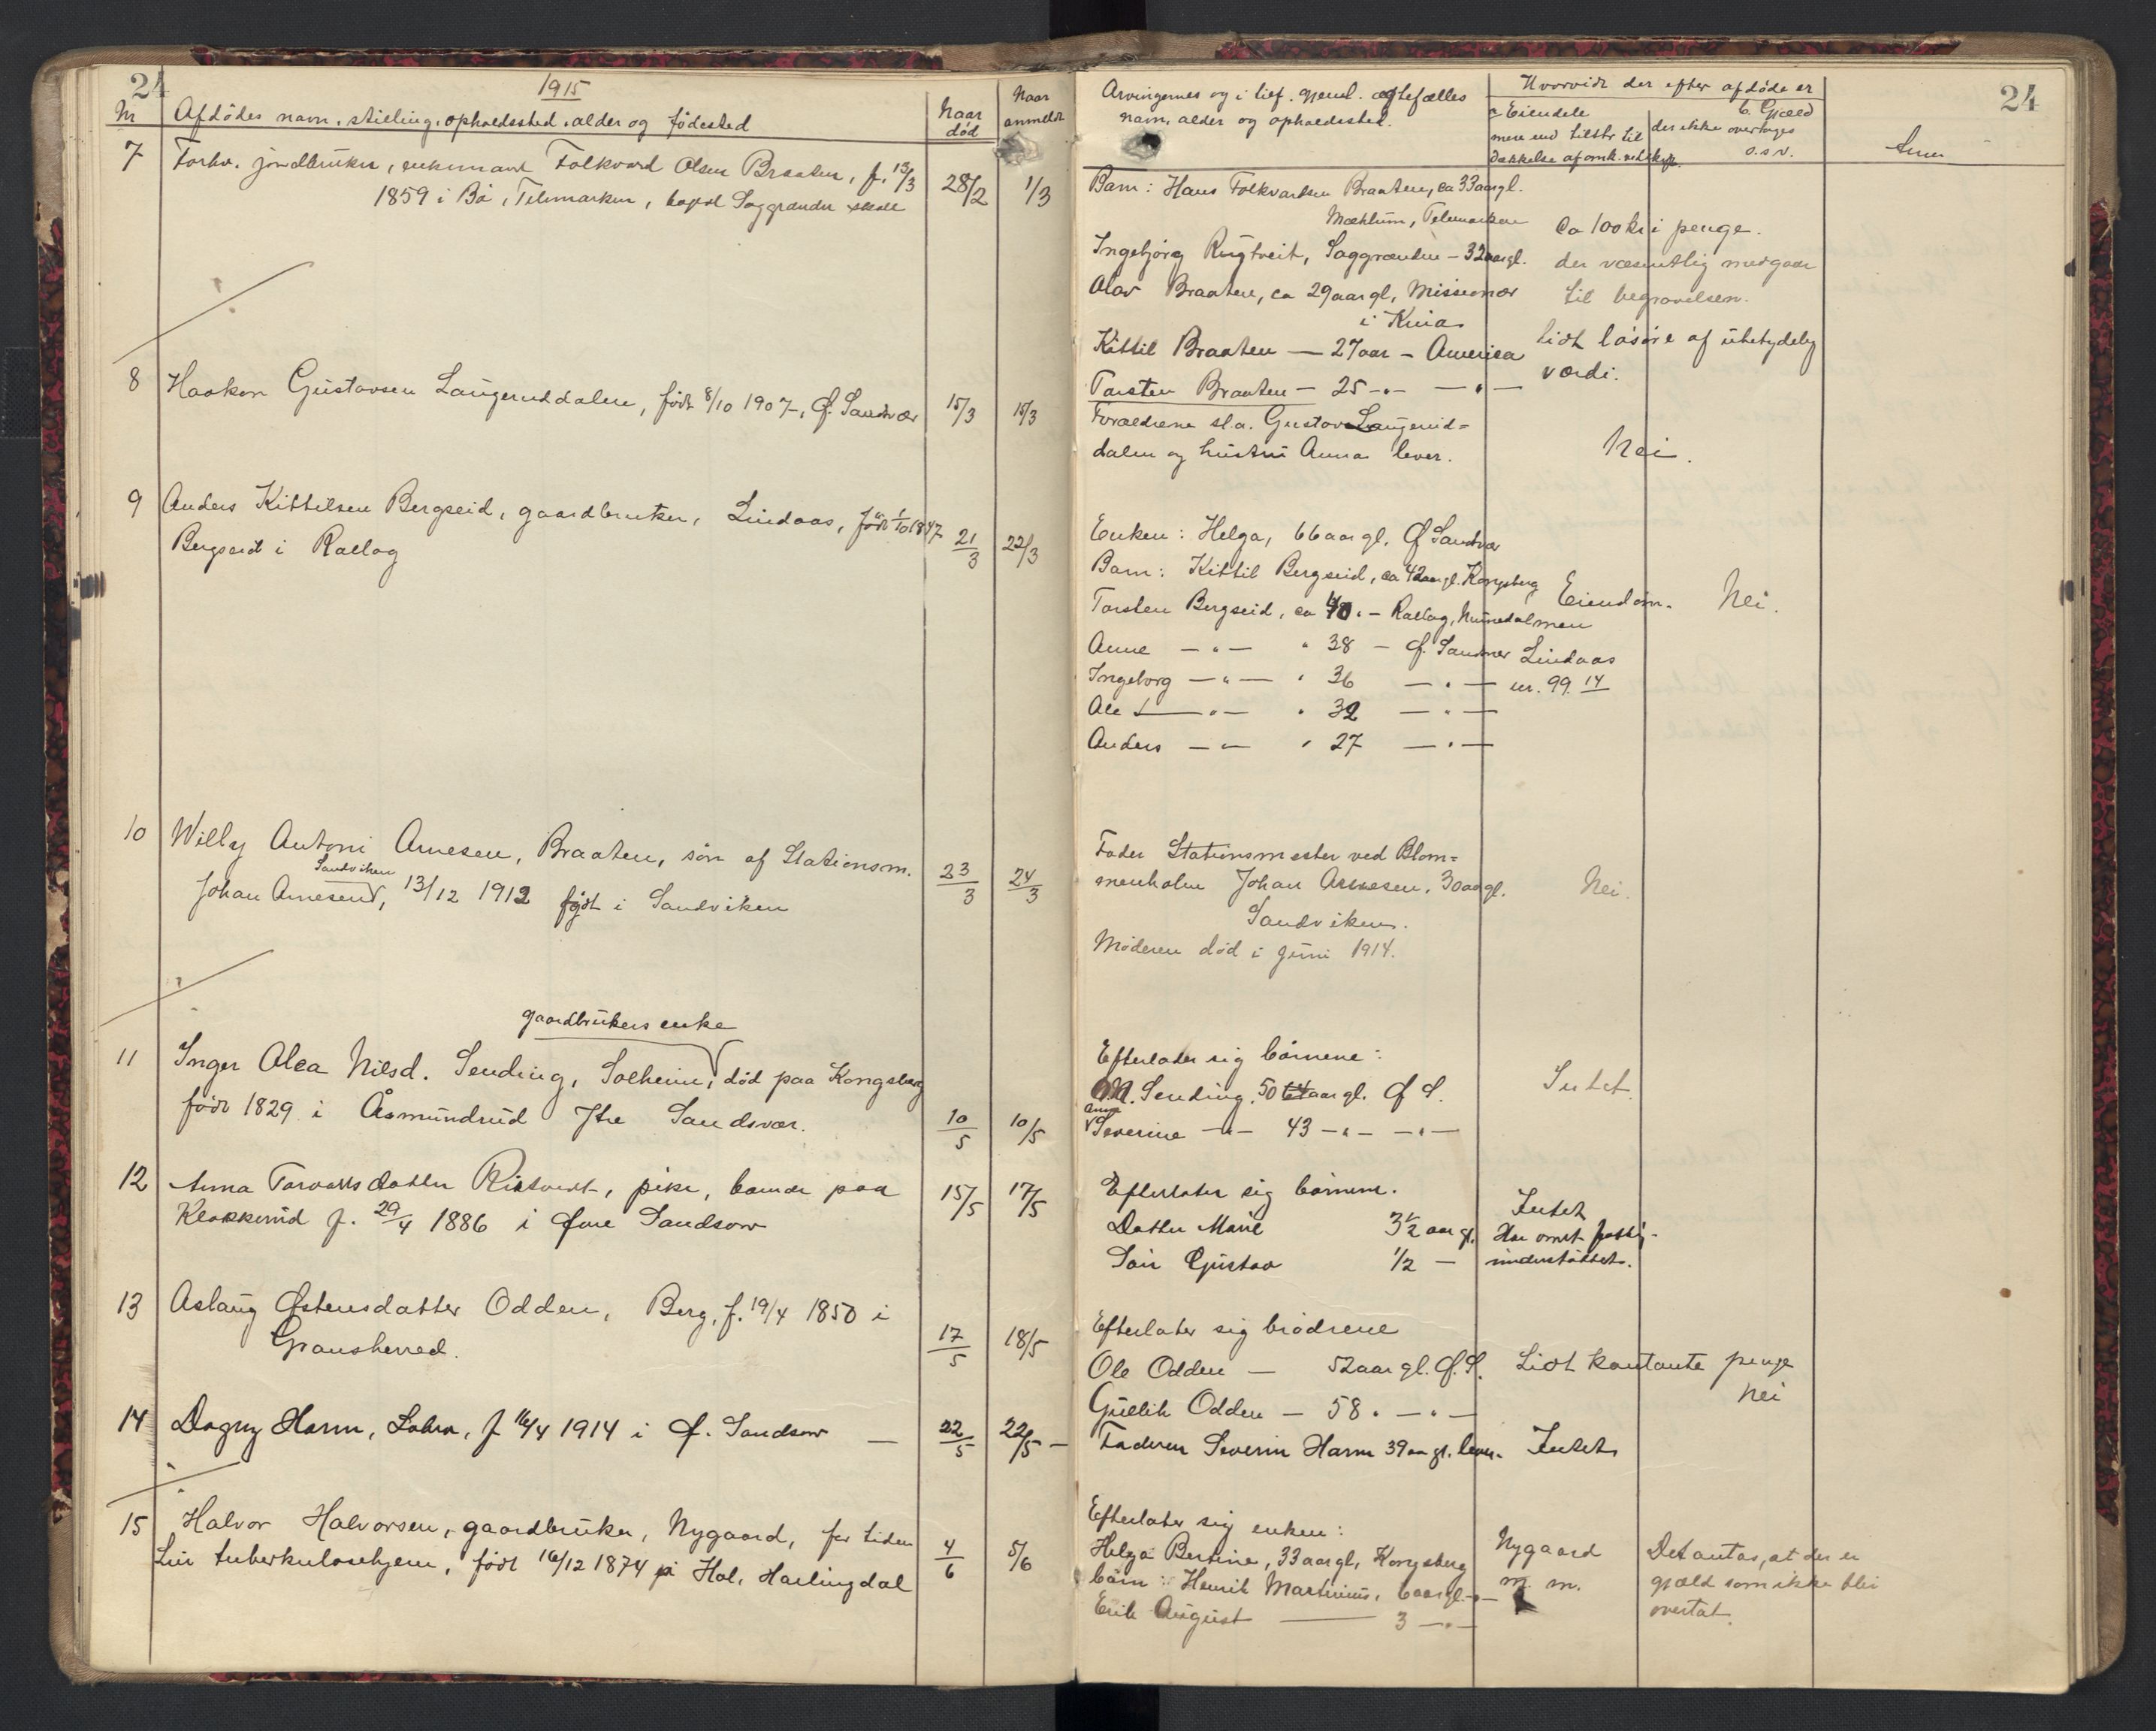 24
1915
Nr
Afdödes navn, stilling, opholdssted, alder og födested
Naar död
Naar anmeldt
7
Forhv. jordbruker, enkemand Folkvard Olsen Braaten, f. 13/3
28/2
1/3
1859 i Bö, Telemarken, bopæl Saggrænden
8
Haakon Gustavsen Langeruddalen, födt 8/10 1907, Ø. Sandsvær
15/3
15/3
9
Anders Kittilsen Bergseid, gaardbruker, Lindaas, födt 1/10 1847
21/3
22/3
Bergseid i Rollag
10
Willy Antoni Arnesen, Braaten, sön af Stationsm.
Sandviken
23/3
24/3
Johan Arnesen, 13/12 1912 födt i Sandviken
gaardbrukers enke
11
Inger Olea Nilsd. Sending, Solheim, död paa Kongsberg
födt 1829 i Åsmundrud Ytre Sandsvær.
10/5
10/5
12
Anna Torvalsdatter Ristvedt, pike, boende paa
15/5
17/5
Klokkerud f. 29/4 1886 i Øvre Sandsvær
13
Aslaug Østensdatter Odden, Berg, f. 19/4 1850 i
17/5
18/5
Gransherred.
14
Dagny Harm, f 16/4 1914 i Ø. Sandsvær —
22/5
22/5 —
15
Halvor Halvorsen, gaardbruker, Nygaard, for tiden
4/6
5/6
Lier tuberkulosehjem, födt 16/12 1874 på Hol, Hallingdal
24
Arvingernes og i tilf. gjenl. ægtefælles
navn, alder og opholdssted.
Hvorvidt der efter afdöde er
a Eiendele
b. Gjæld
mere end tilstr til
der ikke overtages
dækkelse af omk. ved skift.
o.s.v.
Anm
Barn: Hans Folkvardsen Braaten, ca 33 aar gl.
Mæhlum, Telemarken
Ca 100 kr i penge.
Ingebjörg Rugtveit, Saggrænden – 32 aar gl.
der væsentlig medgaar
Olav Braaten, ca 29 aar gl, Missionær
til begravelsen.
i Kina
Kittil Braaten — 27 aar – America
Lidt lösöre af ubetydelig
Torsten Braaten – 25 -"- — " —
værdi.
Forældrene sl.a. Gustav Langerud=
dalen og hustru Anna lever.
Nei.
Enken: Helga, 66 aar gl. Ø Sandsvær
Barn: Kittil Bergseid, ca 42 aar gl. Kongsberg
Eiendom.
Nei.
Torsten Bergseid, ca 40 " – Rollag, Numedalmen
Anne — " — " 38 – Ø. Sandsvær
Lindaas
Ingeborg — " — " 36 — " —
nr. 99. 14
Ole — " — " 32 — " —
Anders — " — " 27 — " —
Fader Stationsmester ved Blom=
menholm Johan Arnesen, 30 aar gl.
Nei.
Sandviken.
Moderen död i juni 1914.
Efterlader sig börnene:
N. Sending, 50 64 aar gl. Ø S.
Intet.
Anne
Severine — " — 43 — " — — " —
Efterlater sig börnene.
Intet
Datter Marie 3 1/2 aar gl.
Sön Gustav 1/2 —
understöttet.
Efterlater sig brödrene
Ole Odden — 52 aar gl. Ø. S.
Lidt kontante penge
Nei
Gullik Odden — 58 " — " —
Faderen Severin Harm 39 aar gl. lever.
Intet
Efterlater sig enken:
Helga Bertine, 33 aar gl, Kongsberg
Nygaard
Det antas, at der er
börn: Henrik Martinius, 6 aar gl. — " —
m. m.
gjæld som ikke blir
Erik August — 3 — " —
overtat.